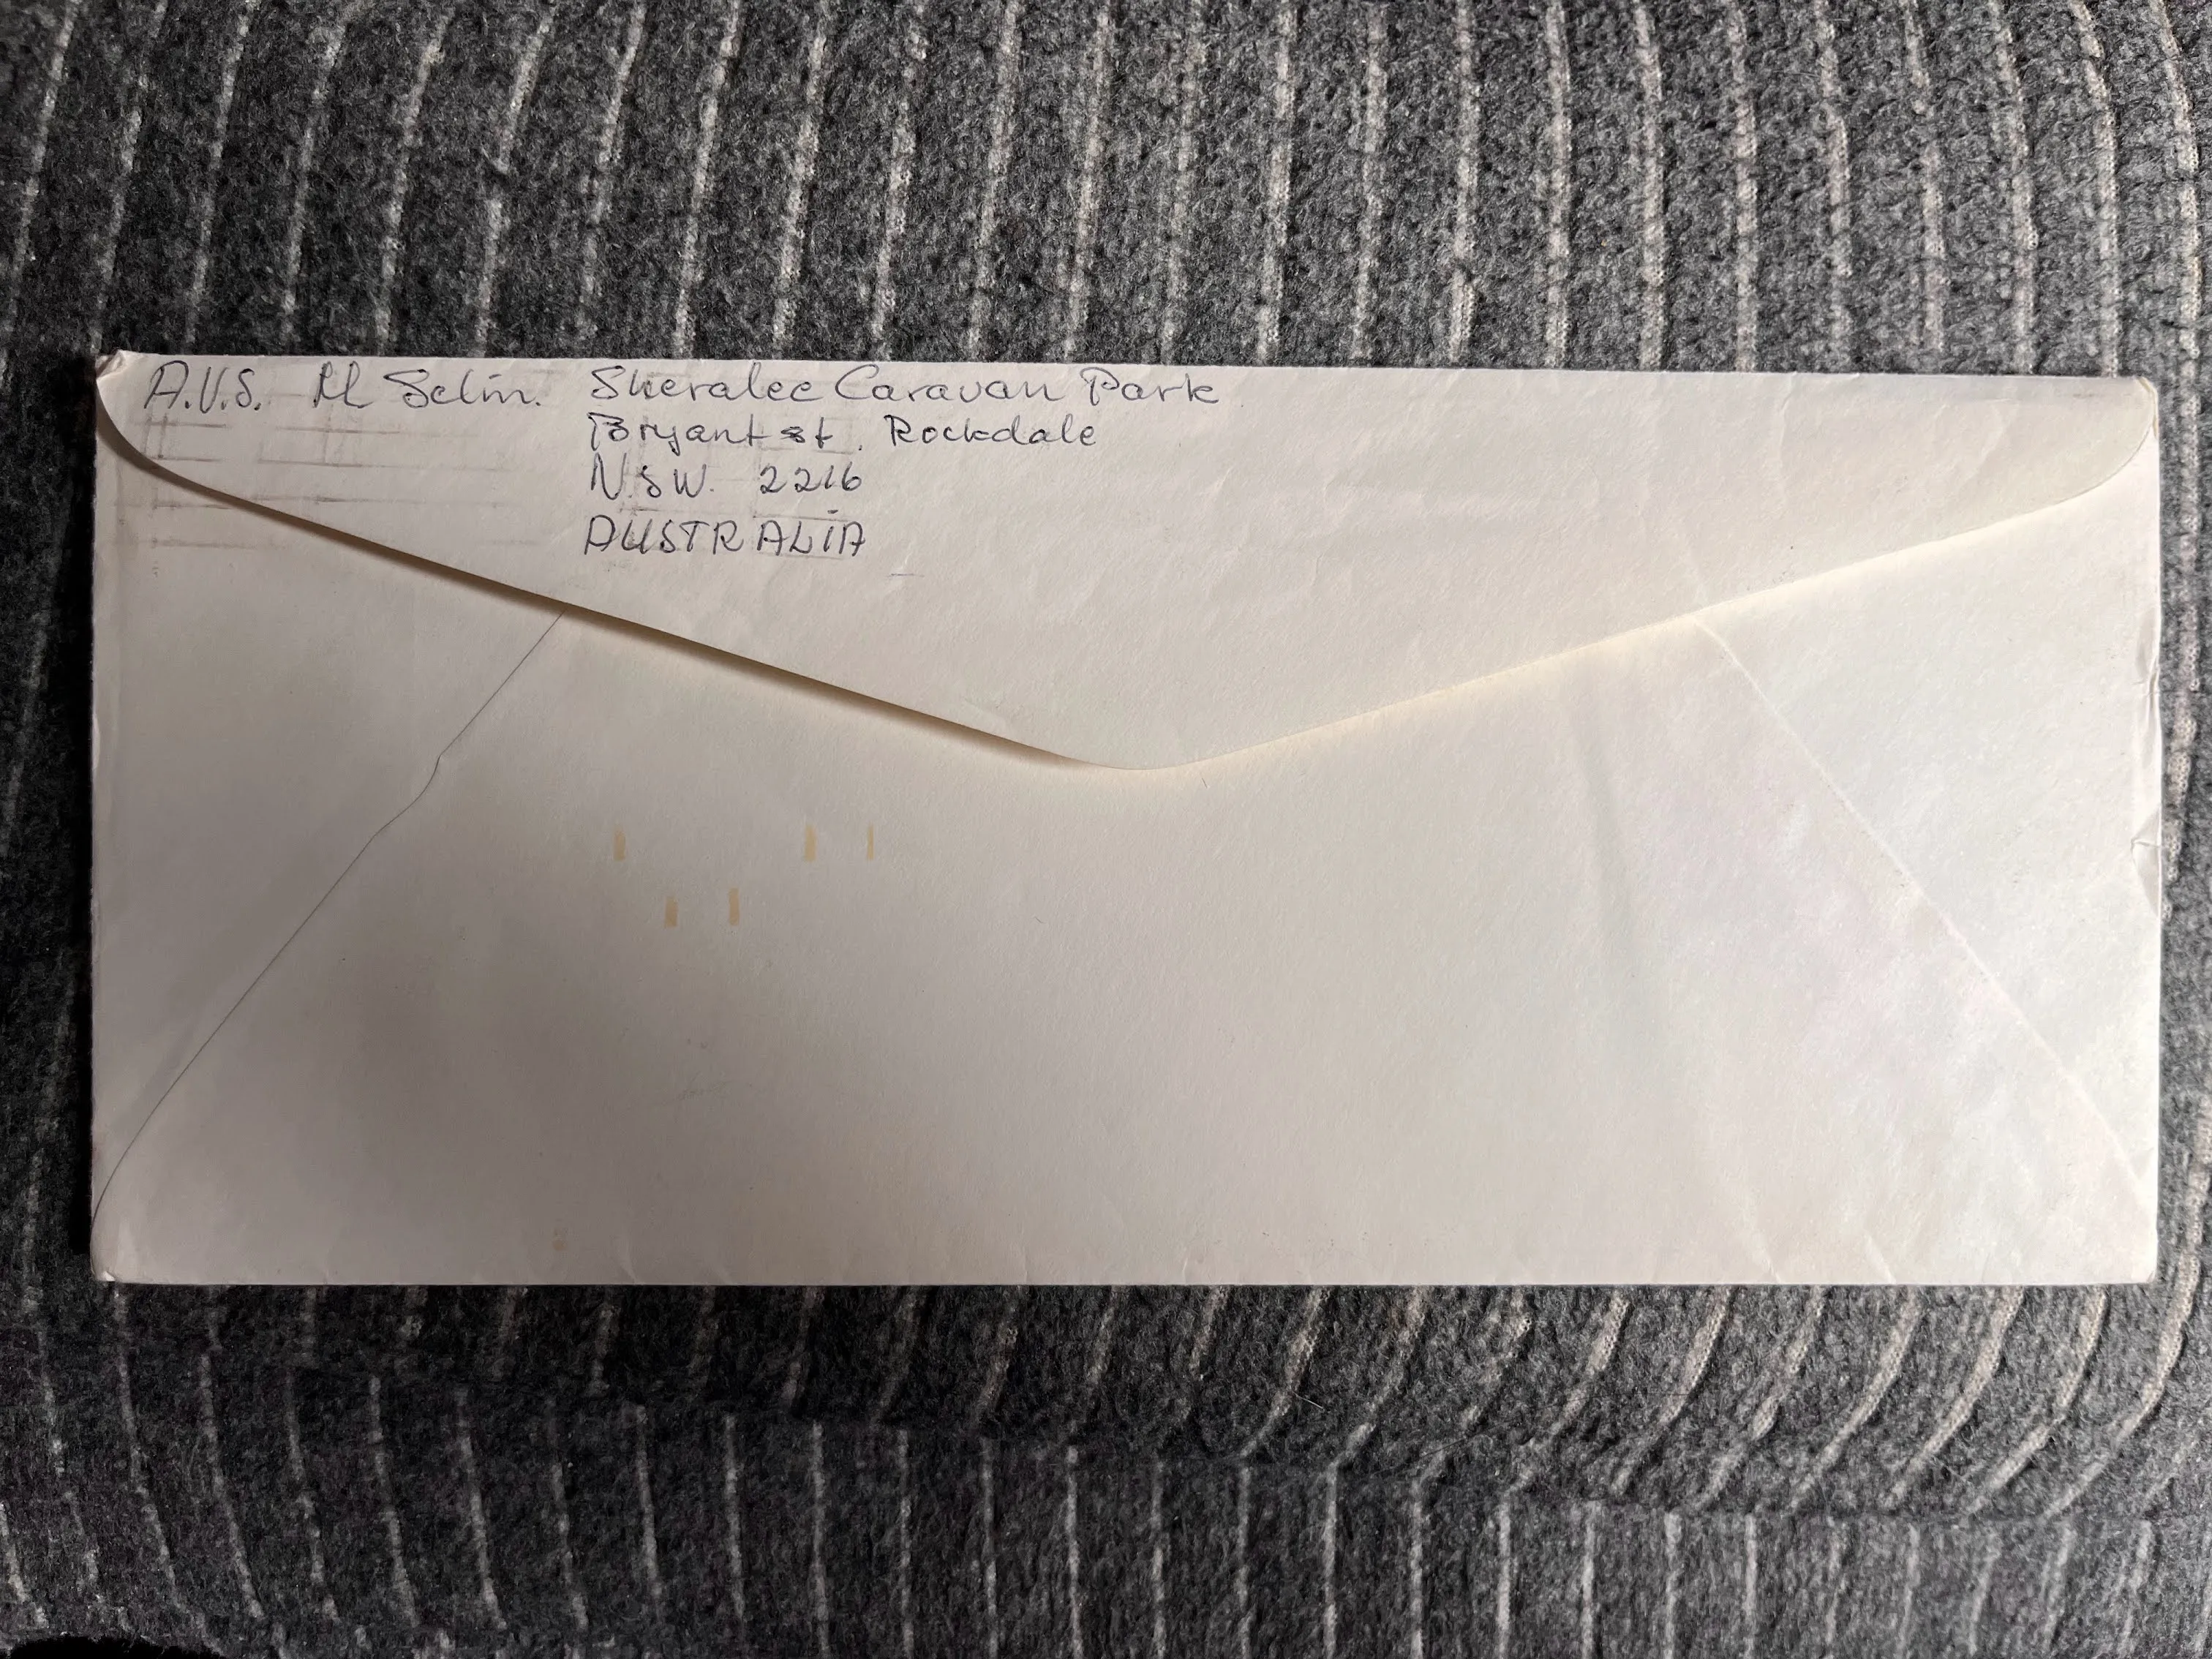 A.V.S. M Selin. Sheralee Caravan Park
Bryant st. Rockdale
N.S.W. 2216
AUSTRALIA